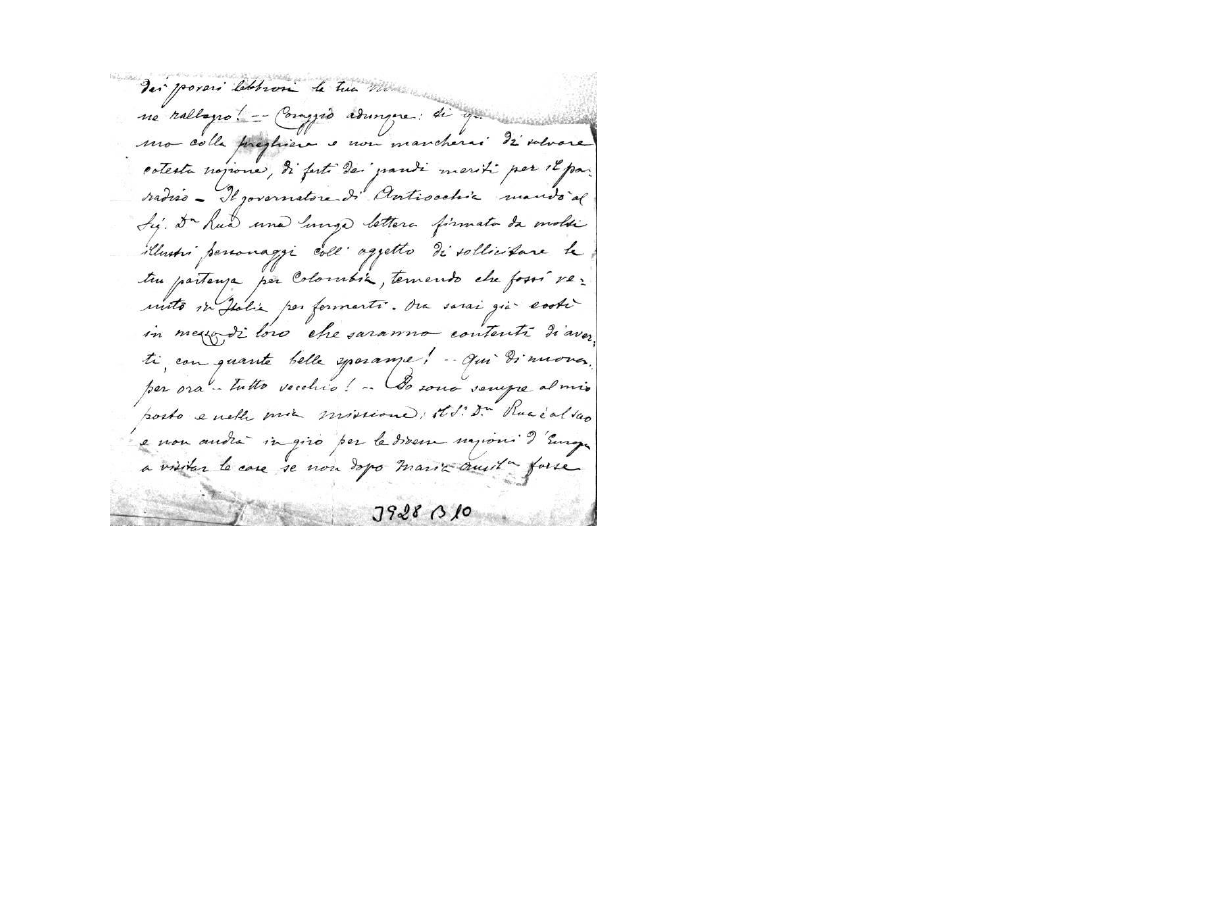 dei poveri lebbrosi la tua
ne rallegro! -- Coraggio adunque: di
mo colla preghiera e non mancherai di salvare
cotesta nazione, di farti dei grandi meriti per il pa-
radiso - Il governatore di Antiocchia mandò al
Sig. Dn Rua una lunga lettera firmata da molti
illustri personaggi coll' oggetto di sollicitare la
tua partenza per Colombia, temendo che fossi ve-
nuto in Italia per fermarti. Ora sarai già costì
in mezzo di loro che saranno contenti di aver-
ti, con quante belle speranze! -- Qui di nuovo
per ora -- tutto vecchio! -- Io sono sempre al mio
posto e nella mia missione; il Sr. Dn Rua è al suo
e non andrà in giro per le diverse nazioni d'Europa
a visitar le case se non dopo Maria Ausiln forse
J928 B10